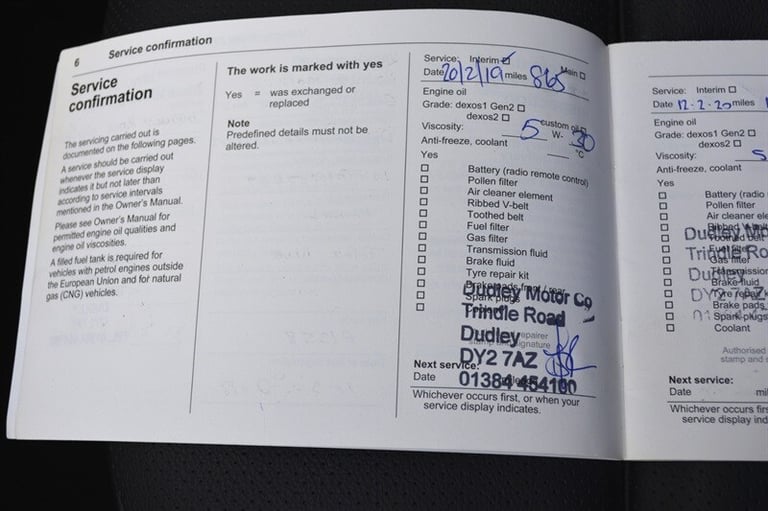 6 Service confirmation
Service
confirmation
The servicing carried out is
documented on the following pages.
A service should be carried out
whenever the service display
indicates it but not later than
according to service intervals
mentioned in the Owner's Manual.
Please see Owner's Manual for
permitted engine oil qualities and
engine oil viscosities.
A filled fuel tank is required for
vehicles with petrol engines outside
the European Union and for natural
gas (CNG) vehicles.
The work is marked with yes
Yes = was exchanged or
replaced
Note
Predefined details must not be
altered.
Service: Interim Main
Date 20/2/19 miles 865
Engine oil
Grade: dexos1 Gen2
dexos2 custom oil
Viscosity: 5 W. 30
Anti-freeze, coolant °C
Yes
Battery (radio remote control)
Pollen filter
Air cleaner element
Ribbed V-belt
Toothed belt
Fuel filter
Gas filter
Transmission fluid
Brake fluid
Tyre repair kit
Brake pads front / rear
Spark plugs
Dudley Motor Co
Trindle Road
Dudley
DY2 7AZ
01384 454100
repairer
signature
Next service:
Date
Whichever occurs first, or when your
service display indicates.
Service: Interim
Date 12-2-20 miles
Engine oil
Grade: dexos1 Gen2
dexos2
Viscosity: 5
Anti-freeze, coolant
Yes
Battery (radio
Pollen filter
Air cleaner ele
Ribbed V-belt
Toothed belt
Fuel filter
Gas filter
Transmission
Brake fluid
Tyre repair
Brake pads
Spark plugs
Coolant
Dudley Mo
Trindle Ro
Dudley
DY2 7AZ
Authorised
stamp and s
Next service:
Date mil
Whichever occurs firs
service display ind